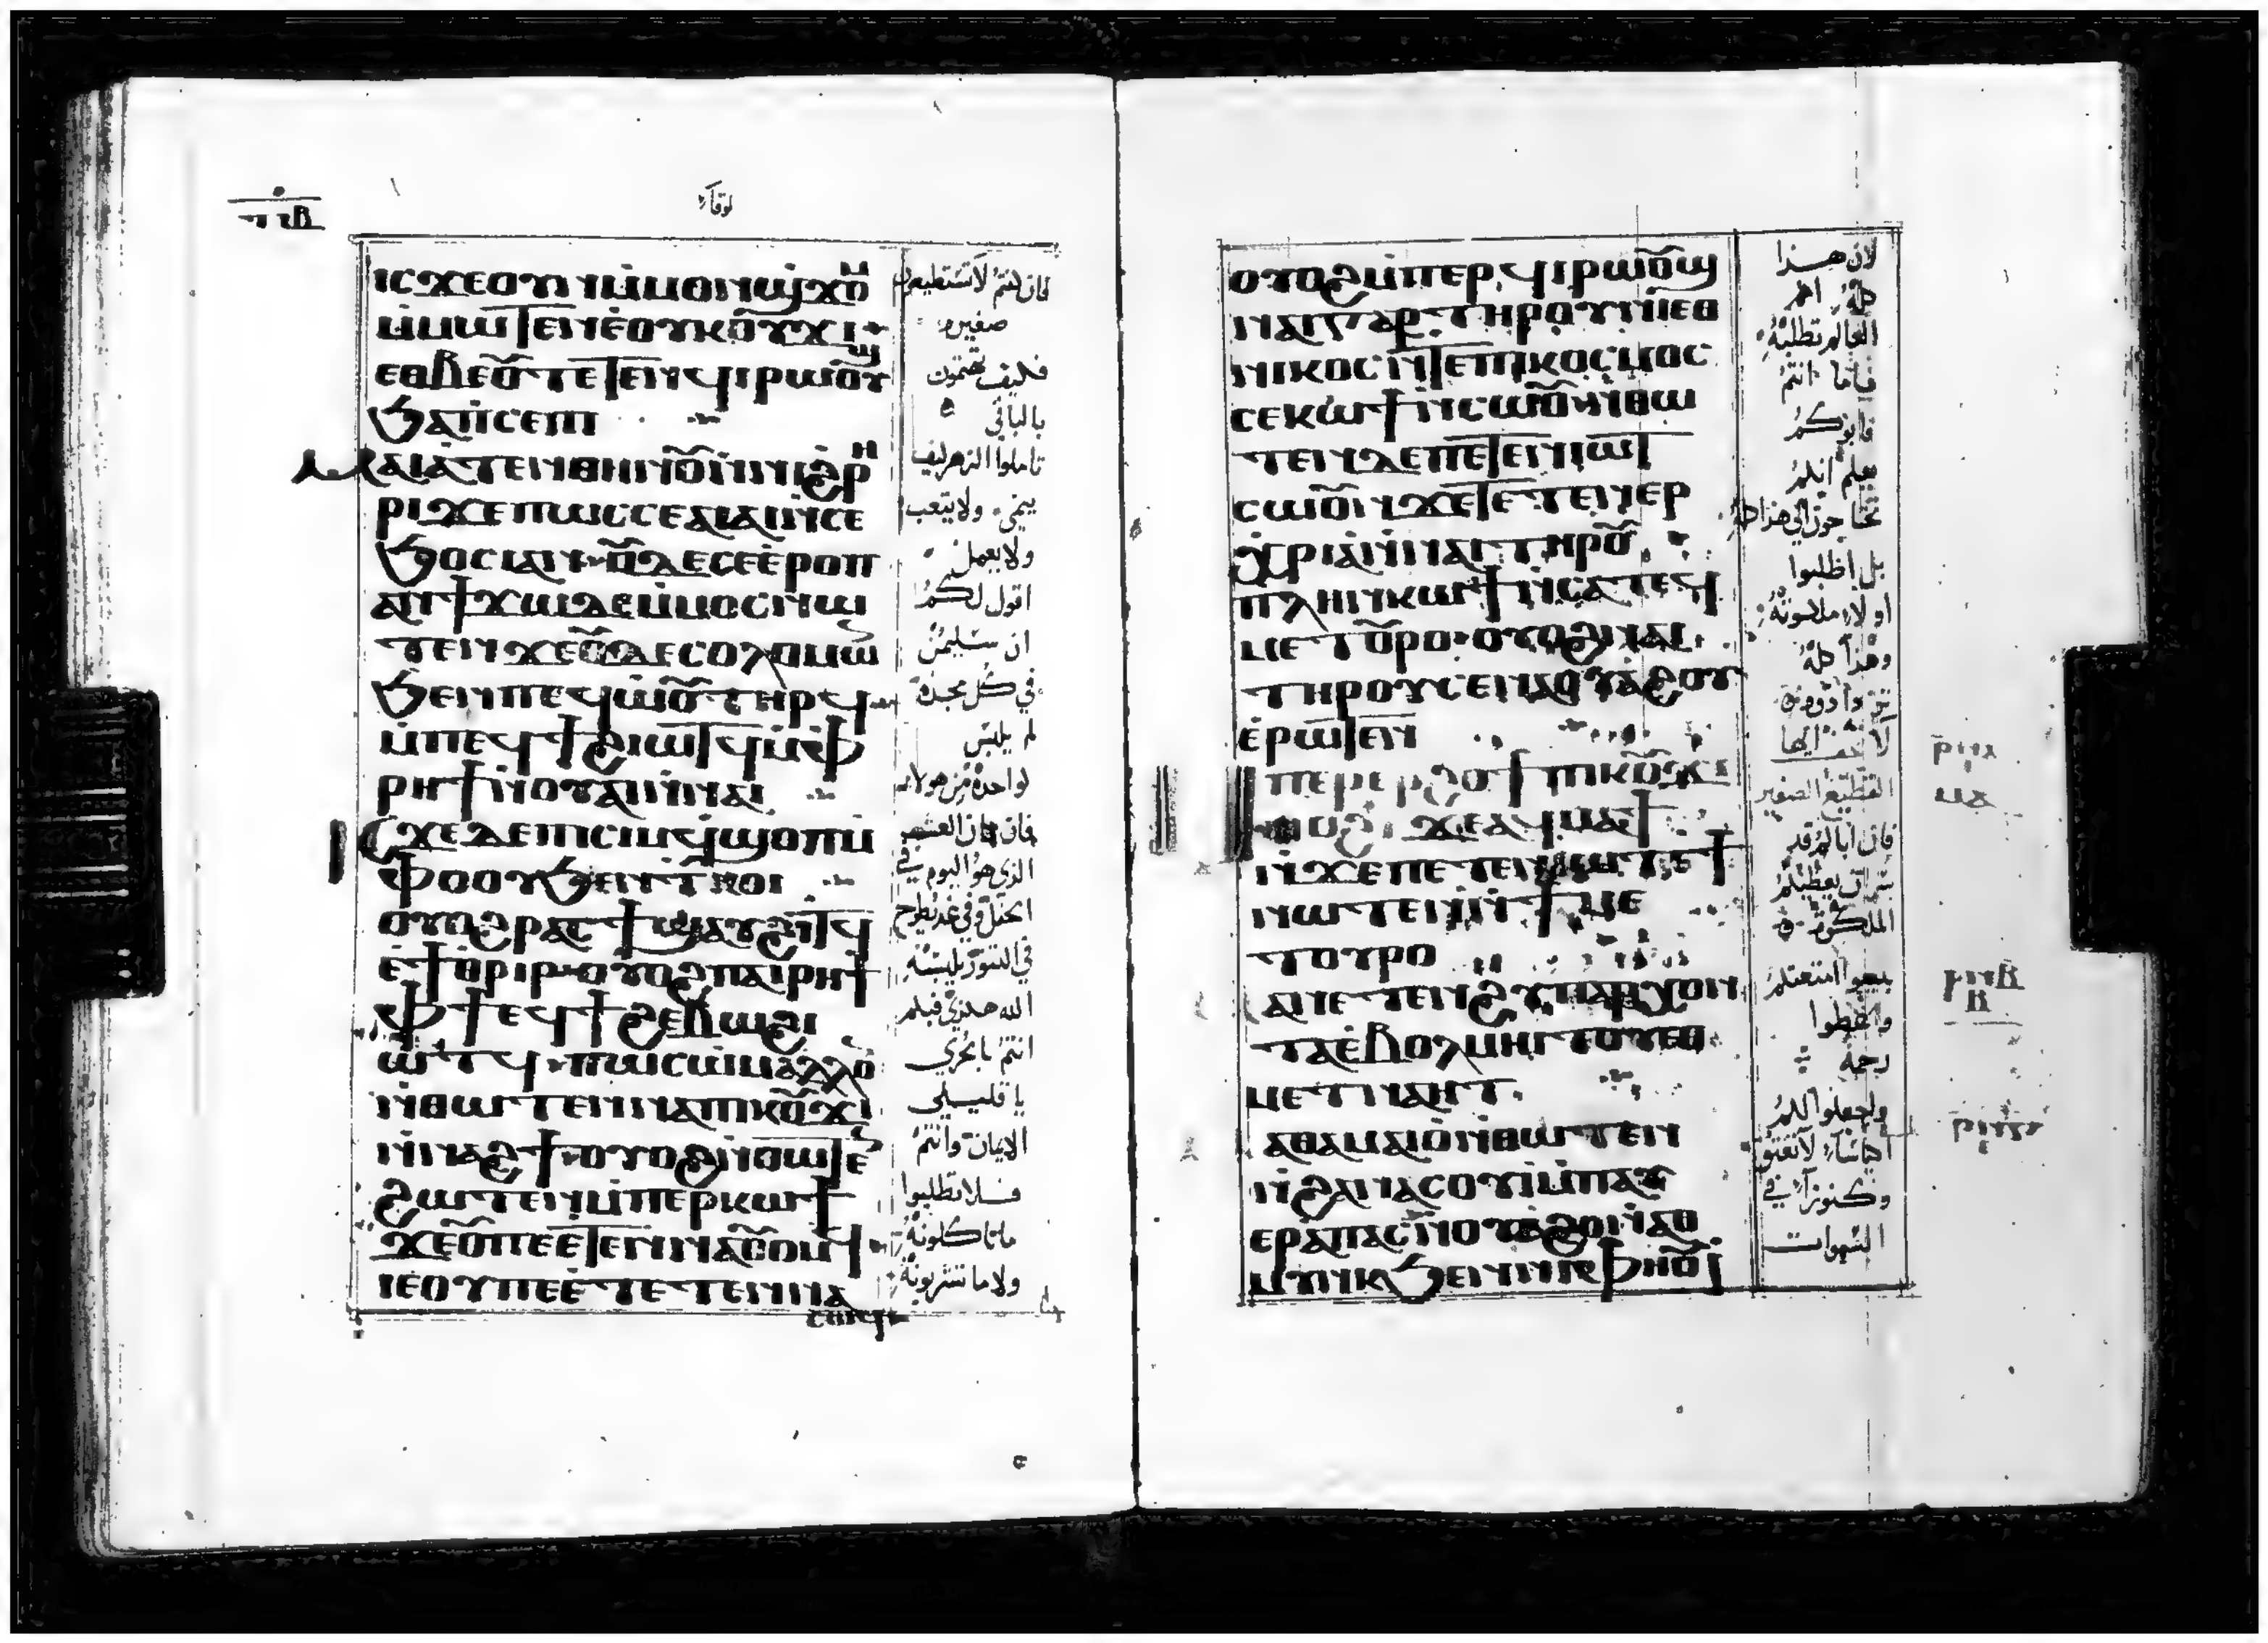 لوقا
ⲓⲥϫⲉⲟⲩⲛⲙ̇ⲙⲟⲛϣϫⲟⲙ
ⲙ̇ⲙⲱⲧⲉⲛⲉ̇ⲟⲩⲕⲟⲩϫⲓ
ⲉⲑⲃⲉⲟⲩⲧⲉⲧⲉⲛϥⲓⲣⲱⲟⲩϣ
ϧⲁⲡⲥⲉⲡⲓ
ⲙⲁⲓⲁⲧⲉⲛⲑⲏⲛⲟⲩⲛ̇ⲛⲓϩⲣⲏ
ⲣⲓϫⲉⲡⲱⲥⲥⲉⲁⲓⲁⲓⲛ̇ⲥⲉ
ϧⲟⲥⲓⲁⲛ ⲟⲩⲇⲉⲥⲉⲉ̇ⲣϩⲱⲡ
ⲁⲛϯϫⲱⲇⲉⲙ̇ⲙⲟⲥⲛⲱ
ⲧⲉⲛϫⲉⲟⲩⲇⲉⲥⲟⲗⲟⲙⲱⲛ
ϧⲉⲛⲡⲉϥⲱ̇ⲟⲩ ⲧⲏⲣϥ
ⲙ̇ⲡⲉϥϯϩⲓⲱⲧϥⲙ̇ⲫ
ⲣⲏϯⲛ̇ⲟⲩⲁⲓⲛ̇ⲛⲁⲓ
ⲓⲥϫⲉⲇⲉⲡⲓⲥⲓⲙϥϣⲟⲡⲙ̇
ⲫⲟⲟⲩϧⲉⲛⲧⲕⲟⲓ
ⲟⲩⲟϩⲣⲁⲥϯϣⲁⲩϩⲓⲧϥ
ⲉ̇ϯⲑⲣⲓⲣ ⲟⲩⲟϩⲡⲁⲓⲣⲏϯ
ⲫϯⲉϥϯϩⲉⲃⲥⲱϩⲓ
ⲱⲧϥ ⲡⲱⲥⲱ̇ⲙⲁⲗⲗⲟⲛ
ⲛ̇ⲑⲱⲧⲉⲛⲛⲁⲡⲓⲕⲟⲩϫⲓ
ⲛ̇ⲛⲁϩϯ ⲟⲩⲟϩⲛ̇ⲑⲱⲧⲉⲛ
ϩⲱⲧⲉⲛⲙ̇ⲡⲉⲣⲕⲱϯ
ϫⲉⲟⲩⲡⲉⲉ̇ⲧⲉⲧⲉⲛⲛⲁⲟⲩⲟⲙϥ
ⲓⲉⲟⲩⲡⲉⲉ̇ⲧⲉⲧⲉⲛⲛⲁ
ⲥⲟϥ
فان كنتم لا تستطيعون
صغيره
فكيف تهتمون
بالباقي
تاملوا الزهر كيف
ينمي ولا يتعب
ولا يعمل
اقول لكم
ان سليمن
في كل مجده
لم يلبس
لواحده من هولاء
فان كان العشب
الذي هو اليوم في
الحقل وفي غد يطرح
في التنور يلبسه
الله هكذي فبكم
انتم بالحري
يا قليلي
الايمان وانتم
فلا تطلبوا
ماتاكلونه
ولا ما تشربونه
ⲟⲩⲟϩⲙ̇ⲡⲉⲣϥⲓⲣⲱⲟⲩϣ
ⲛⲁⲓⲅⲁⲣ ⲧⲏⲣⲟⲩⲛⲓⲉⲑ
ⲛⲓⲕⲟⲥⲛ̇ⲧⲉⲡⲓⲕⲟⲥⲙⲟⲥ
ⲥⲉⲕⲱϯⲛⲥⲱⲟⲩⲛ̇ⲑⲱ
ⲧⲉⲛⲇⲉⲡⲉⲧⲉⲛⲓⲱⲧ
ⲥⲱⲟⲩⲛϫⲉⲧⲉⲧⲉⲛⲉⲣ
ⲭⲣⲓⲁⲛ̇ⲛⲁⲓⲧⲏⲣⲟⲩ
ⲡⲗⲏⲛⲕⲱϯⲛⲥⲁⲧⲉϥ
ⲙⲉⲧⲟⲩⲣⲟ ⲟⲩⲟϩⲛⲁⲓ
ⲧⲏⲣⲟⲩⲥⲉⲛⲁⲟⲩⲁϩⲟⲩ
ⲉ̇ⲣⲱⲧⲉⲛ
ⲙⲡⲉⲣⲉⲣϩⲟϯⲡⲓⲕⲟⲩϫⲓ
ⲛⲟϩⲓ ϫⲉⲁϥⲙⲁϯ
ⲛ̇ϫⲉⲡⲉⲧⲉⲛⲓⲱⲧⲉϯ
ⲛⲱⲧⲉⲛⲛ̇ϯⲙⲉ
ⲧⲟⲩⲣⲟ
ⲙⲁⲛⲉⲧⲉⲛϩⲩⲡⲁⲣⲭⲟⲛ
ⲧⲁⲉ̇ⲃⲟⲗⲙⲏⲓⲧⲟⲩⲉⲑ
ⲙⲉⲧⲛⲁⲏⲧ
ⲙⲁⲑⲁⲙⲓⲟ̇ⲛⲱⲧⲉⲛ
ⲛ̇ϩⲁⲛⲁⲥⲟⲩⲓⲙ̇ⲡⲁⲩ
ⲉⲣⲁⲡⲁⲥⲛ̇ⲟⲩⲁϩⲟⲛ̇ⲁⲑ
ⲙⲟⲩⲛⲕϧⲉⲛⲛⲓⲫⲏⲟⲩⲓ
لان هذا
كله امم
العالم تطلبه
فاما انتم
فابوكم
يعلم انكم
تحتاجون الي هذا كله
بل اطلبوا
اولا ملكوته
وهذا كله
تزدادونه
لا تخف ايها
القطيع الصغير
فان اباكم قد
سر ان يعطيكم
الملكوت
بيعوا امتعتكم
واعطوا
رحمة
واجعلوا لكم
اكياسا لا تعتق
وكنوزا في
السموات